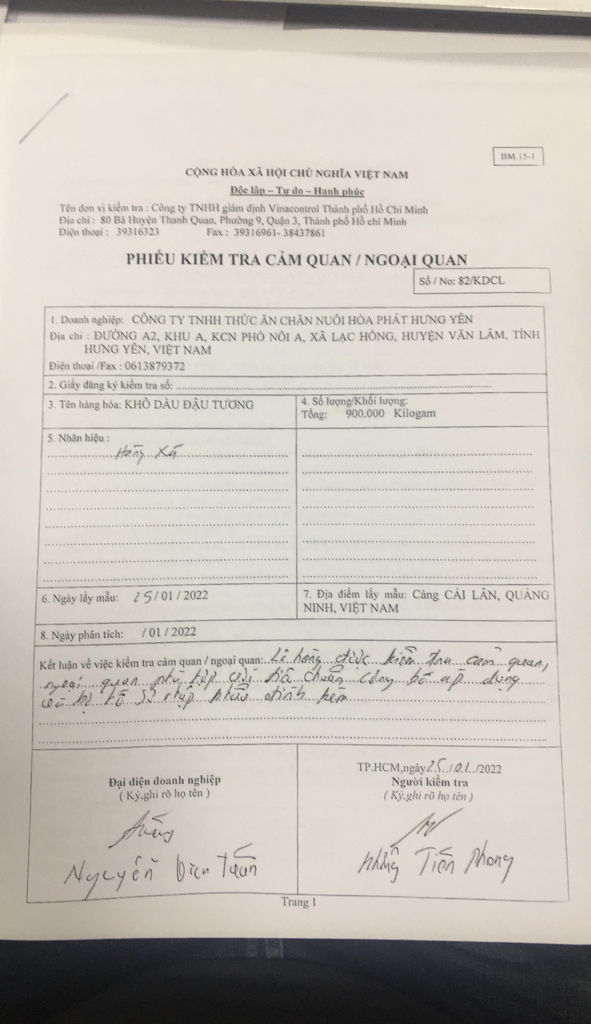 BM.15-1
CỘNG HÒA XÃ HỘI CHỦ NGHĨA VIỆT NAM
Độc lập – Tự do – Hạnh phúc
Tên đơn vị kiểm tra : Công ty TNHH giám định Vinacontrol Thành phố Hồ Chí Minh
Địa chỉ : 80 Bà Huyện Thanh Quan, Phường 9, Quận 3, Thành phố Hồ chí Minh
Điện thoại : 39316323 Fax : 39316961- 38437861
PHIẾU KIỂM TRA CẢM QUAN / NGOẠI QUAN
Số / No: 82/KDCL
1. Doanh nghiệp: CÔNG TY TNHH THỨC ĂN CHĂN NUÔI HÒA PHÁT HƯNG YÊN
Địa chỉ : ĐƯỜNG A2, KHU A, KCN PHỐ NỐI A, XÃ LẠC HỒNG, HUYỆN VĂN LÂM, TỈNH
HƯNG YÊN, VIỆT NAM
Điện thoại /Fax : 0613879372
2. Giấy đăng ký kiểm tra số:
3. Tên hàng hóa: KHÔ DẦU ĐẬU TƯƠNG
4. Số lượng/Khối lượng:
Tổng: 900.000 Kilogam
5. Nhãn hiệu :
Hàng Xá
6. Ngày lấy mẫu: 25/01/2022
7. Địa điểm lấy mẫu: Cảng CÁI LÂN, QUẢNG
NINH, VIỆT NAM
8. Ngày phân tích: /01/2022
Kết luận về việc kiểm tra cảm quan / ngoại quan: Lô hàng được kiểm tra cảm quan,
ngoại quan phù hợp với tiêu chuẩn công bố áp dụng
và bộ hồ sơ nhập khẩu đính kèm
Đại diện doanh nghiệp
( Ký,ghi rõ họ tên )
Nguyễn Tuấn
TP.HCM,ngày 25/01/2022
Người kiểm tra
( Ký,ghi rõ họ tên )
Tiến Phong
Trang 1